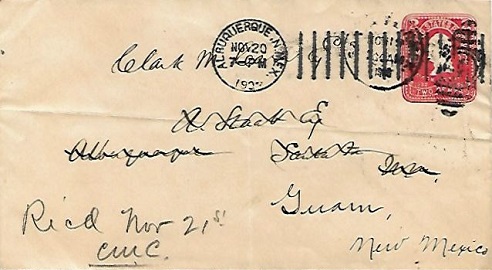 ALBUQUERQUE, N. MEX.
NOV 20
7-PM
190
STATES
TWO
Clark M
A. Staab Esq
Albuquerque
Santa Fe
Guam,
New Mexico
Ric'd Nov 21st
CMC.